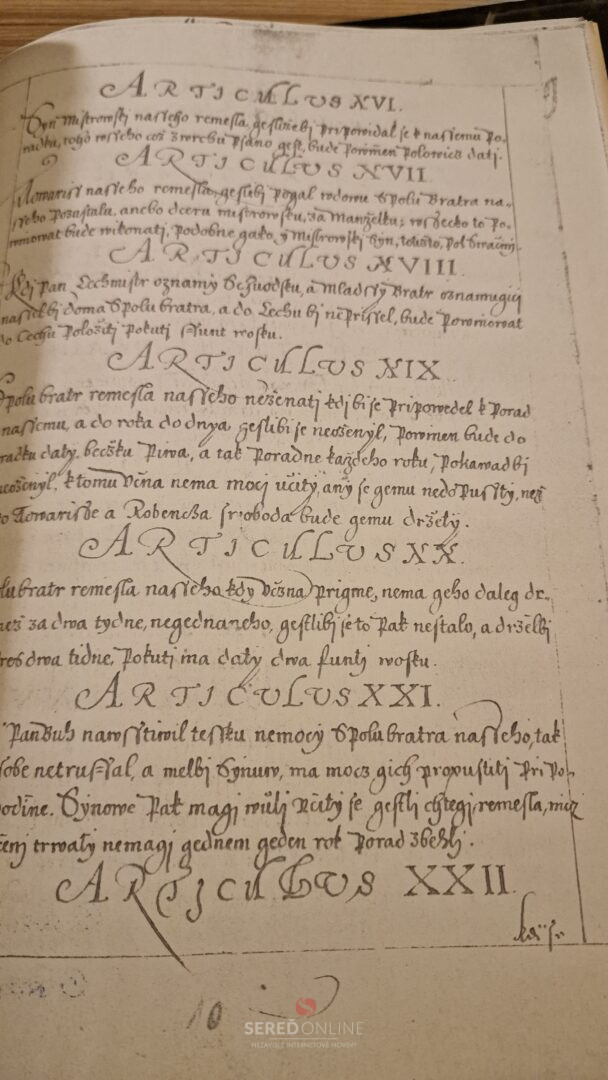 ARTICULUS XVI.
Syn Mistrowskj nasseho remesla, gestlizebj pripowidal se k nassemu Po-
radku, toho wsseho což zwrchu psano gest, bude powinen polowicz dati.
ARTICULUS XVII
Towariss nasseho remesla, gestlibj pogal wdowu Spolu Bratra na-
sseho pozustalu, anebo dceru mistrowsku, za Manželku; wsseczko to po-
winowat bude wikonati, podobne gako, y Mistrowskj Syn, toližto, pol
ARTICULUS XVIII.
Kdj pan Cechmistr oznamy Schuodsku, a Mladssy Bratr oznamugicz
nasselbj doma Spolu bratra, a do Cechu bj neprissel, bude powinowat
do Cechu položiti pokuti ffunt wosku.
ARTICULUS XIX
Spolu bratr remesla nasseho neženati kdj bi se pripowedel k porad
nassemu, a do roka do dnya gestlibi se neoženyl, powinen bude do
radku daty. beczku piwa, a tak poradne každeho roku, pokawad bj
neoženyl. k tomu Učna nema mocj učity, anj se gemu nedopusty, než
to Towarisse a Robencza swoboda bude gemu držety.
ARTICULUS XX.
lu bratr remesla nasseho kdy Učzna prigme, nema geho daleg dr-
než za dwa tydne, negednaneho, gestlibi se to pak nestalo, a drželbj
pres dwa tidne, pokuti ma daty dwa funtj wosku.
ARTICULUS XXI.
Pan Buh nawsstiwil tessku nemocy Spolu bratra nasseho, tak
sobe netruffal, a melbj Synuw, ma mocz gich propustiti pri po-
hodine. Synowe pak magi wulj učity se gestli chtegi, remesla, než
čenj trwaty nemagi gednem geden rok porad zbehlj.
ARTICULUS XXII.
10
SEREĎONLINE
NEZÁVISLÉ INTERNETOVÉ NOVINY